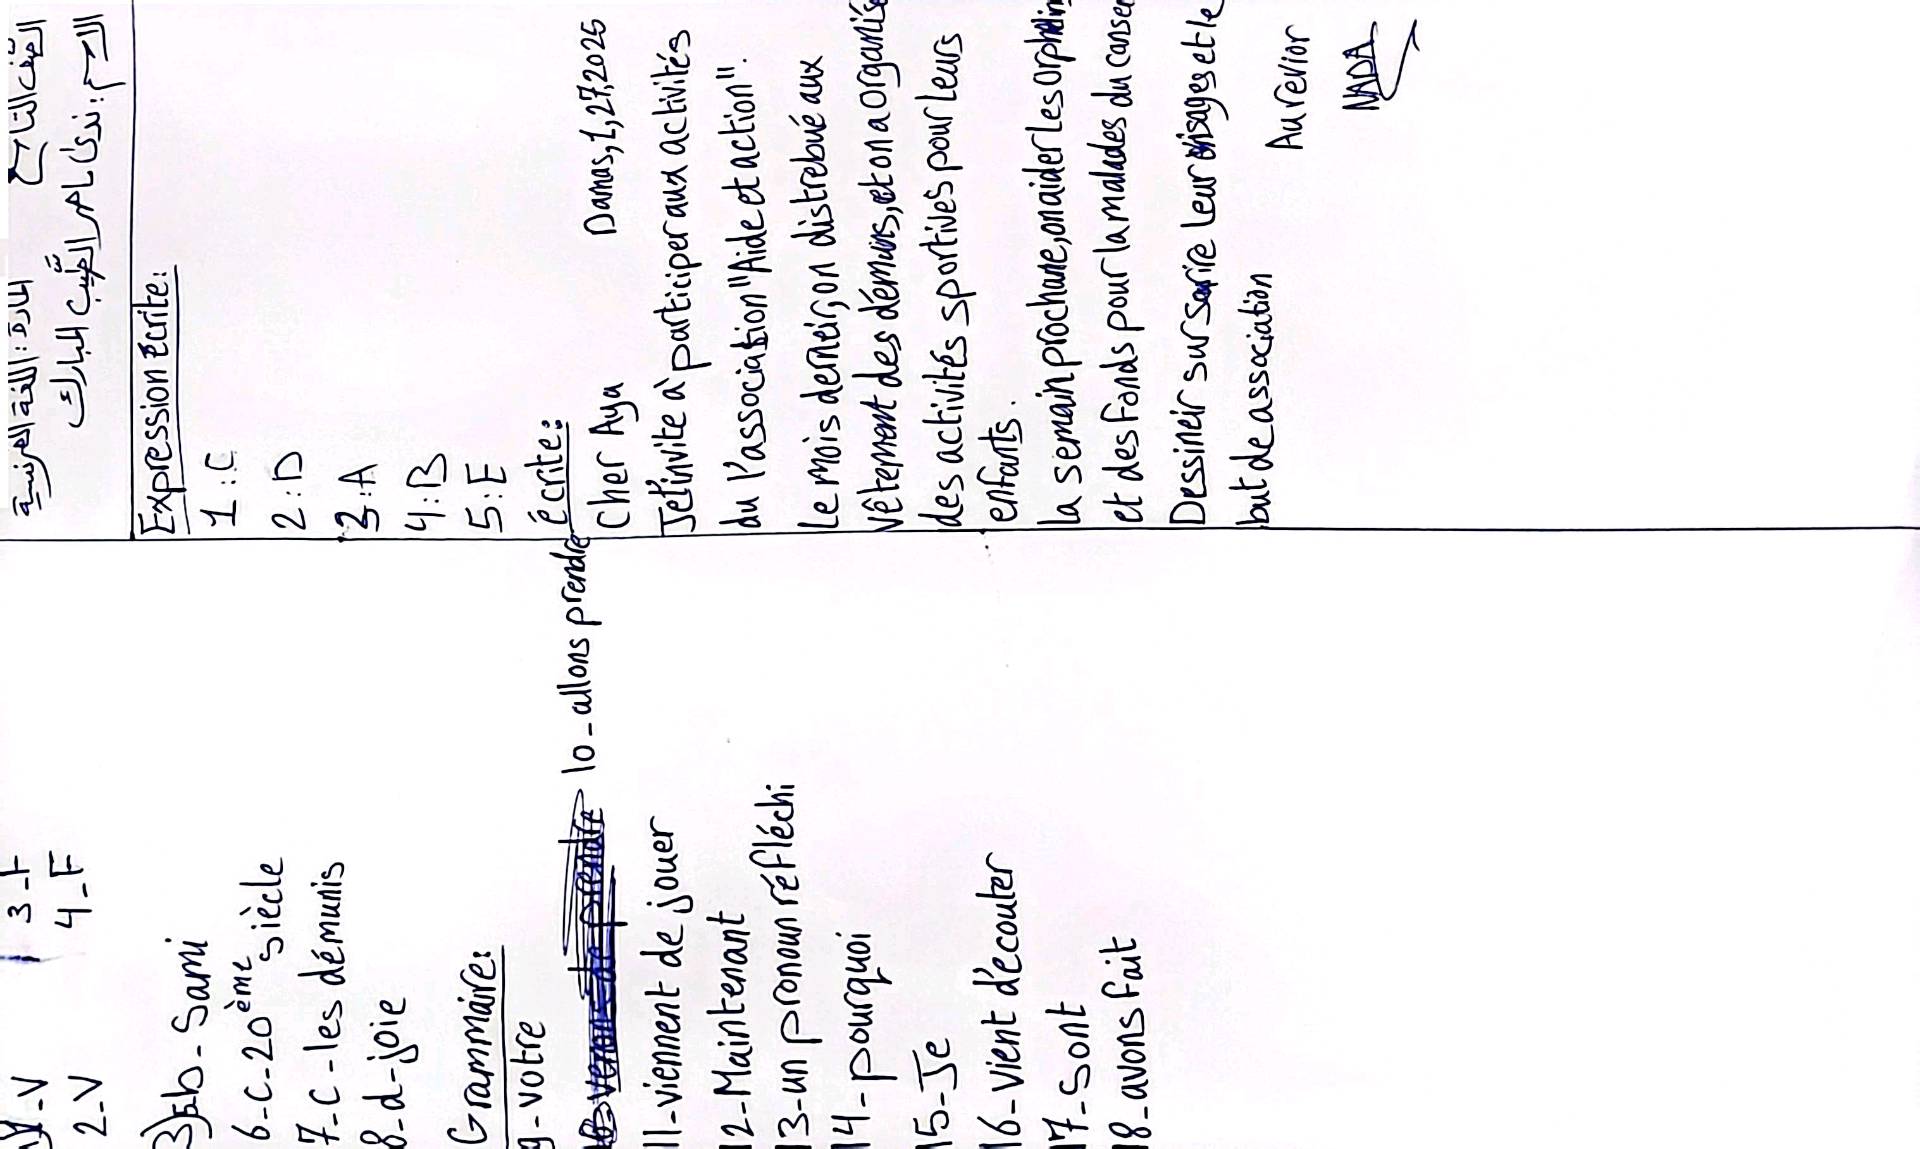 المادة: اللغة الفرنسية
الصف التاسع
الاسم: ندى ناصر الطيب المبارك
1-V 3-F
2-V 4-F
3) 5b-Sami
6-C-20ème siècle
7-C-les démunis
8-d-joie
Grammaire:
9-votre
10-allons prendre
11-viennent de jouer
12-Maintenant
13-un pronoun réfléchi
14-pourquoi
15-Je
16-Vient d'écouter
17-Sont
18-avons fait
Expression écrite:
1:C
2:D
3:A
4:B
5:E
écrite:
Cher Aya Damas, 1, 27, 2025
Je t'invite à participer aux activités
du l'association "Aide et action".
Le mois derneir, on distrebué aux
vêtement des démuis, et on a organisé
des activités sportives pour leurs
enfants.
la semain prochane, on aider les orphelin
et des fonds pour la malades du
Dessineir sur sorire leur visages et le
but de association
Au revior
NADA